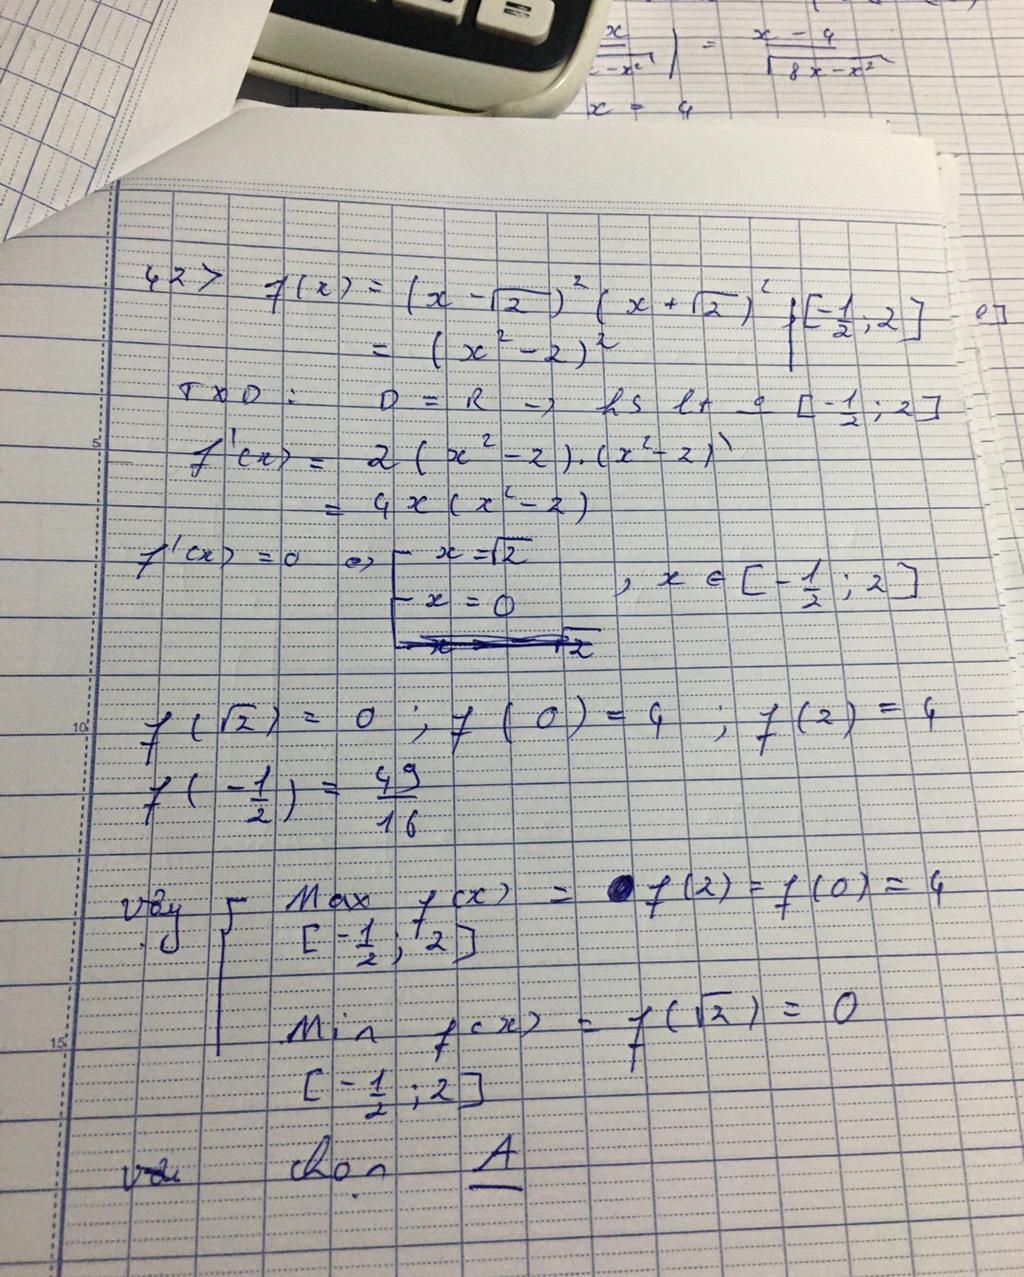 x - 4
x | = √8x-x²
- x²
x = 4
42> f(x) = (x - √2)² (x + √2)² | [-1/2 ; 2]
= (x² - 2)²
TXD : D = R → hs lt [-1/2 ; 2]
f'(x) = 2 (x² - 2).(x² - 2)'
= 4x (x² - 2)
f'(x) = 0 ⇔ [ x = √2
x = 0 , x ∈ [-1/2 ; 2]
√2
f(√2) = 0 ; f(0) = 4 ; f(2) = 4
f(-1/2) = 49/16
vậy { Max f(x) = f(2) = f(0) = 4
[-1/2 ; 2]
Min f(x) = f(√2) = 0
[-1/2 ; 2]
chọn A
5
10
15